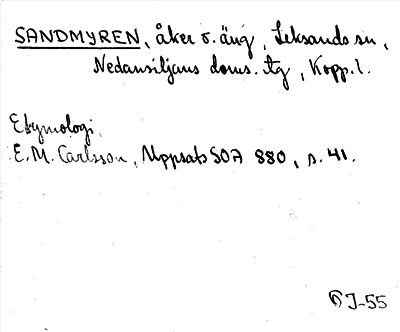 SANDMYREN, åker o. äng, Leksands sn,
Nedansiljans doms. tg, Kopp. l.
Etymologi.
E.M. Carlsson, Uppsats SOA 880, s. 41.
J-55